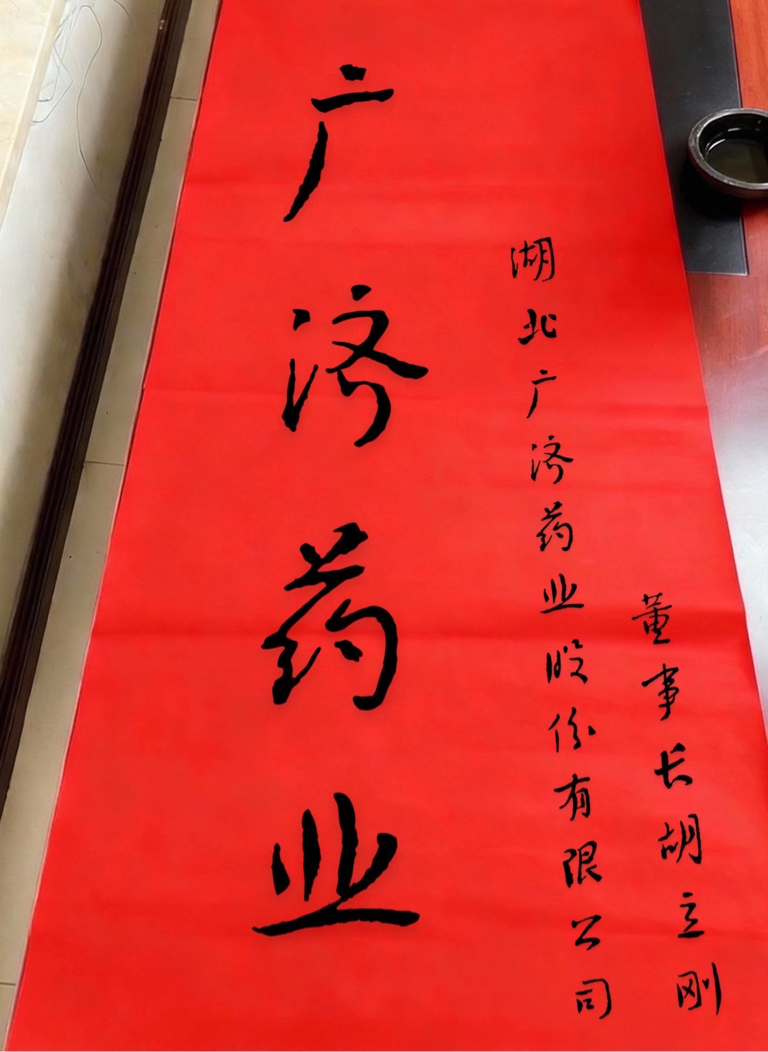 广济药业
湖北广济药业股份有限公司
董事长胡立刚